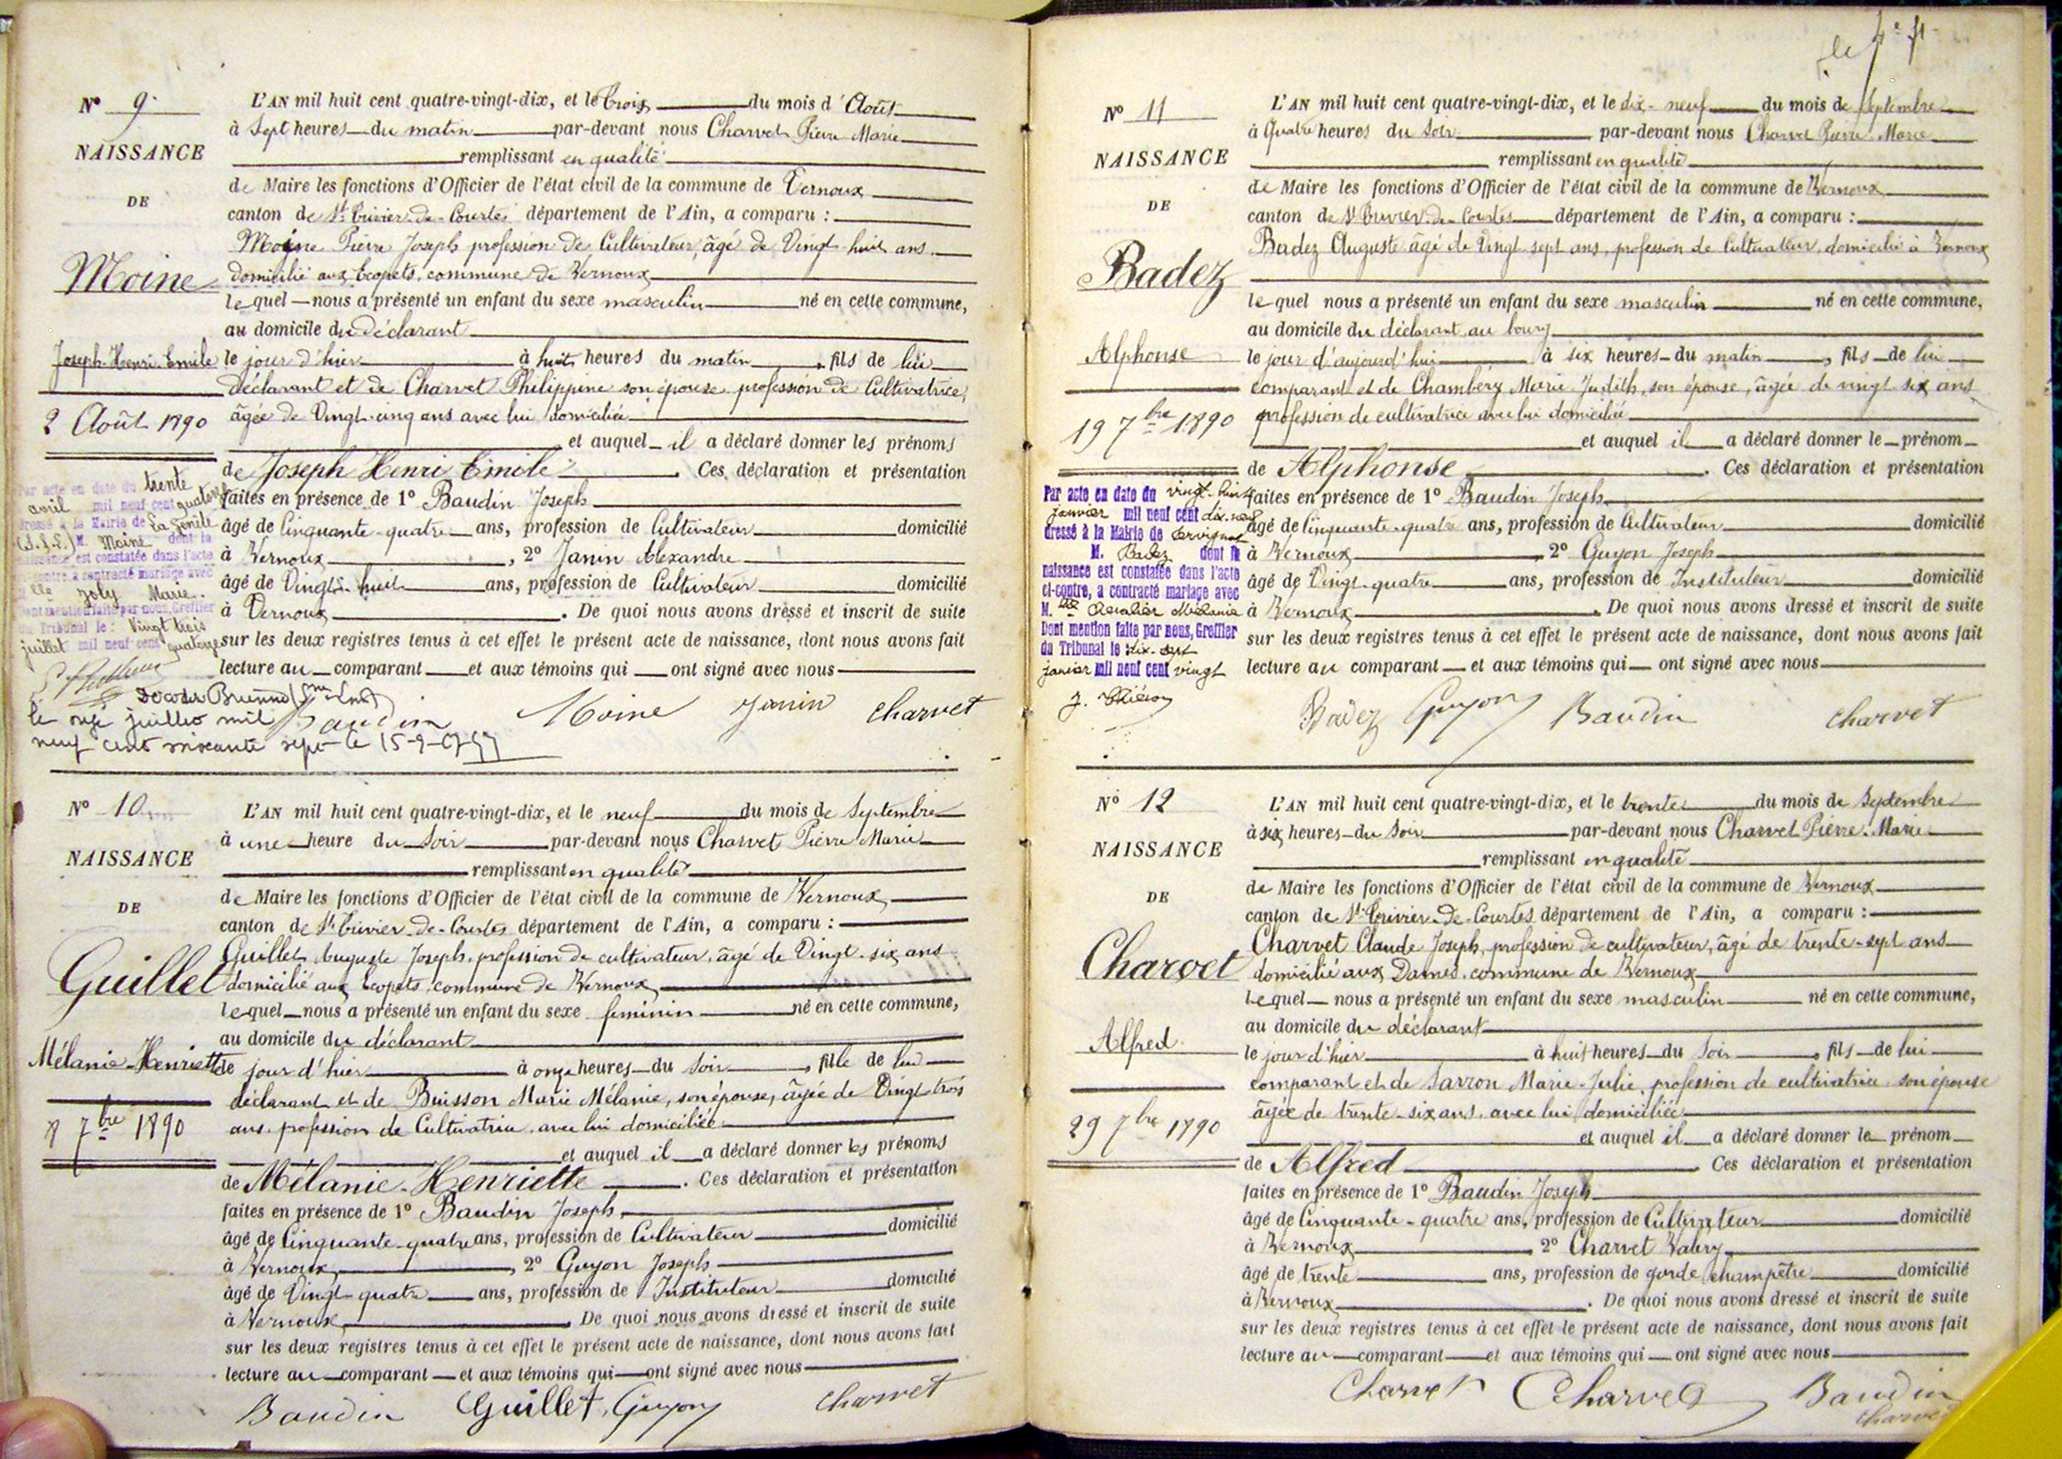 N° 9.
NAISSANCE
DE
Moine
Joseph Henri Emile
2 Août 1890
Par acte en date du trente
avril mil neuf cent quatorze
dressé à la Mairie de La Genête
(S.&L.) M. Moine dont la
naissance est constatée dans l'acte
ci-contre a contracté mariage avec
Mlle Joly Marie.
Dont mention faite par nous, Greffier
du Tribunal le: Vingt trois
juillet mil neuf cent quatorze
L'AN mil huit cent quatre-vingt-dix, et le trois du mois d'Août
à sept heures du matin par-devant nous Charvet Pierre Marie
remplissant en qualité
de Maire les fonctions d'Officier de l'état civil de la commune de Vernoux
canton de St Trivier-de-Courtes département de l'Ain, a comparu :
Moine Pierre Joseph profession de Cultivateur, âgé de Vingt-huit ans
domicilié aux Ecopets, commune de Vernoux
lequel nous a présenté un enfant du sexe masculin né en cette commune,
au domicile du déclarant
le jour d'hier à huit heures du matin, fils de lui
déclarant et de Charvet Philippine son épouse profession de Cultivatrice,
âgée de Vingt-cinq ans avec lui domiciliée
et auquel il a déclaré donner les prénoms
de Joseph Henri Emile. Ces déclaration et présentation
faites en présence de 1° Baudin Joseph
âgé de Cinquante-quatre ans, profession de Cultivateur domicilié
à Vernoux, 2° Janin Alexandre
âgé de Vingt-huit ans, profession de Cultivateur domicilié
à Vernoux. De quoi nous avons dressé et inscrit de suite
sur les deux registres tenus à cet effet le présent acte de naissance, dont nous avons fait
lecture au comparant et aux témoins qui ont signé avec nous
Baudin Moine Janin Charvet
le onze juillet mil
neuf cent soixante sept le 15-9-67
N° 10
NAISSANCE
DE
Guillet
Mélanie Henriette
8 7bre 1890
L'AN mil huit cent quatre-vingt-dix, et le neuf du mois de Septembre
à une heure du soir par-devant nous Charvet Pierre Marie
remplissant en qualité
de Maire les fonctions d'Officier de l'état civil de la commune de Vernoux
canton de St Trivier-de-Courtes département de l'Ain, a comparu :
Guillet Auguste Joseph, profession de cultivateur, âgé de Vingt-six ans
domicilié aux Ecopets, commune de Vernoux
lequel nous a présenté un enfant du sexe féminin né en cette commune,
au domicile du déclarant
le jour d'hier à onze heures du soir, fille de lui
déclarant et de Buisson Marie Mélanie, son épouse, âgée de Vingt trois
ans, profession de Cultivatrice, avec lui domiciliée
et auquel il a déclaré donner les prénoms
de Mélanie-Henriette. Ces déclaration et présentation
faites en présence de 1° Baudin Joseph
âgé de Cinquante-quatre ans, profession de Cultivateur domicilié
à Vernoux, 2° Guyon Joseph
âgé de Vingt-quatre ans, profession de Instituteur domicilié
à Vernoux. De quoi nous avons dressé et inscrit de suite
sur les deux registres tenus à cet effet le présent acte de naissance, dont nous avons fait
lecture au comparant et aux témoins qui ont signé avec nous
Baudin Guillet Guyon Charvet
N° 11
NAISSANCE
DE
Badez
Alphonse
19 7bre 1890
Par acte en date du vingt-huit
janvier mil neuf cent dix-neuf
dressé à la Mairie de Servignat
M. Badez dont la
naissance est constatée dans l'acte
ci-contre, a contracté mariage avec
M.lle Chevalier Mélanie
Dont mention faite par nous, Greffier
du Tribunal le dix-sept
janvier mil neuf cent vingt
L'AN mil huit cent quatre-vingt-dix, et le dix-neuf du mois de Septembre
à Quatre heures du soir par-devant nous Charvet Pierre Marie
remplissant en qualité
de Maire les fonctions d'Officier de l'état civil de la commune de Vernoux
canton de St Trivier-de-Courtes département de l'Ain, a comparu :
Badez Auguste âgé de Vingt sept ans, profession de Cultivateur, domicilié à Vernoux
lequel nous a présenté un enfant du sexe masculin né en cette commune,
au domicile du déclarant au bourg
le jour d'aujourd'hui à six heures du matin, fils de lui
comparant et de Chambéry Marie Judith, son épouse, âgée de vingt six ans
profession de cultivatrice avec lui domiciliée
et auquel il a déclaré donner le prénom
de Alphonse. Ces déclaration et présentation
faites en présence de 1° Baudin Joseph
âgé de Cinquante-quatre ans, profession de Cultivateur domicilié
à Vernoux, 2° Guyon Joseph
âgé de Vingt-quatre ans, profession de Instituteur domicilié
à Vernoux. De quoi nous avons dressé et inscrit de suite
sur les deux registres tenus à cet effet le présent acte de naissance, dont nous avons fait
lecture au comparant et aux témoins qui ont signé avec nous
Badez Guyon Baudin Charvet
N° 12
NAISSANCE
DE
Charvet
Alfred
29 7bre 1890
L'AN mil huit cent quatre-vingt-dix, et le trente du mois de Septembre
à six heures du soir par-devant nous Charvet Pierre Marie
remplissant en qualité
de Maire les fonctions d'Officier de l'état civil de la commune de Vernoux
canton de St Trivier-de-Courtes département de l'Ain, a comparu :
Charvet Claude Joseph, profession de cultivateur, âgé de trente-sept ans
domicilié aux Dames, commune de Vernoux
lequel nous a présenté un enfant du sexe masculin né en cette commune,
au domicile du déclarant
le jour d'hier à huit heures du soir, fils de lui
comparant et de Sarron Marie Julie, profession de cultivatrice son épouse
âgée de trente-six ans, avec lui domiciliée
et auquel il a déclaré donner le prénom
de Alfred. Ces déclaration et présentation
faites en présence de 1° Baudin Joseph
âgé de Cinquante-quatre ans, profession de Cultivateur domicilié
à Vernoux 2° Charvet Valéry
âgé de trente ans, profession de garde champêtre domicilié
à Vernoux. De quoi nous avons dressé et inscrit de suite
sur les deux registres tenus à cet effet le présent acte de naissance, dont nous avons fait
lecture au comparant et aux témoins qui ont signé avec nous
Charvet Charvet Baudin
Charvet